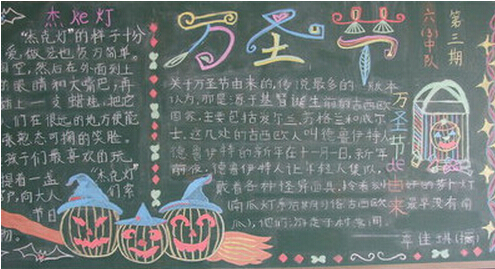 杰克灯
"杰克灯"的样子十分
爱,做范也极为简单。
空,然后在外面刻上
的眼睛和大嘴巴,再
插上一支蜡烛,把它
们在很远的地方便能
憨态可掬的笑脸。
孩子们最喜欢的玩
提着一盏"杰克灯"
向大人们索
节日
万圣节
第三期
六(3)中队
万圣节de由来
关于万圣节由来的,传说最多的版本
认为,那是源于基督诞生前的古西欧
国家,主要包括爱尔兰、苏格兰和威尔
士。这几处的古西欧人叫德鲁伊特人
德鲁伊特的新年在十一月一日,新年
前夜,德鲁伊特人让年轻人集队,
戴着各种怪异面具,拎着刻好的萝卜灯
(南瓜灯系后期习俗,古西欧最早没有南
瓜),他们游走于村落间。